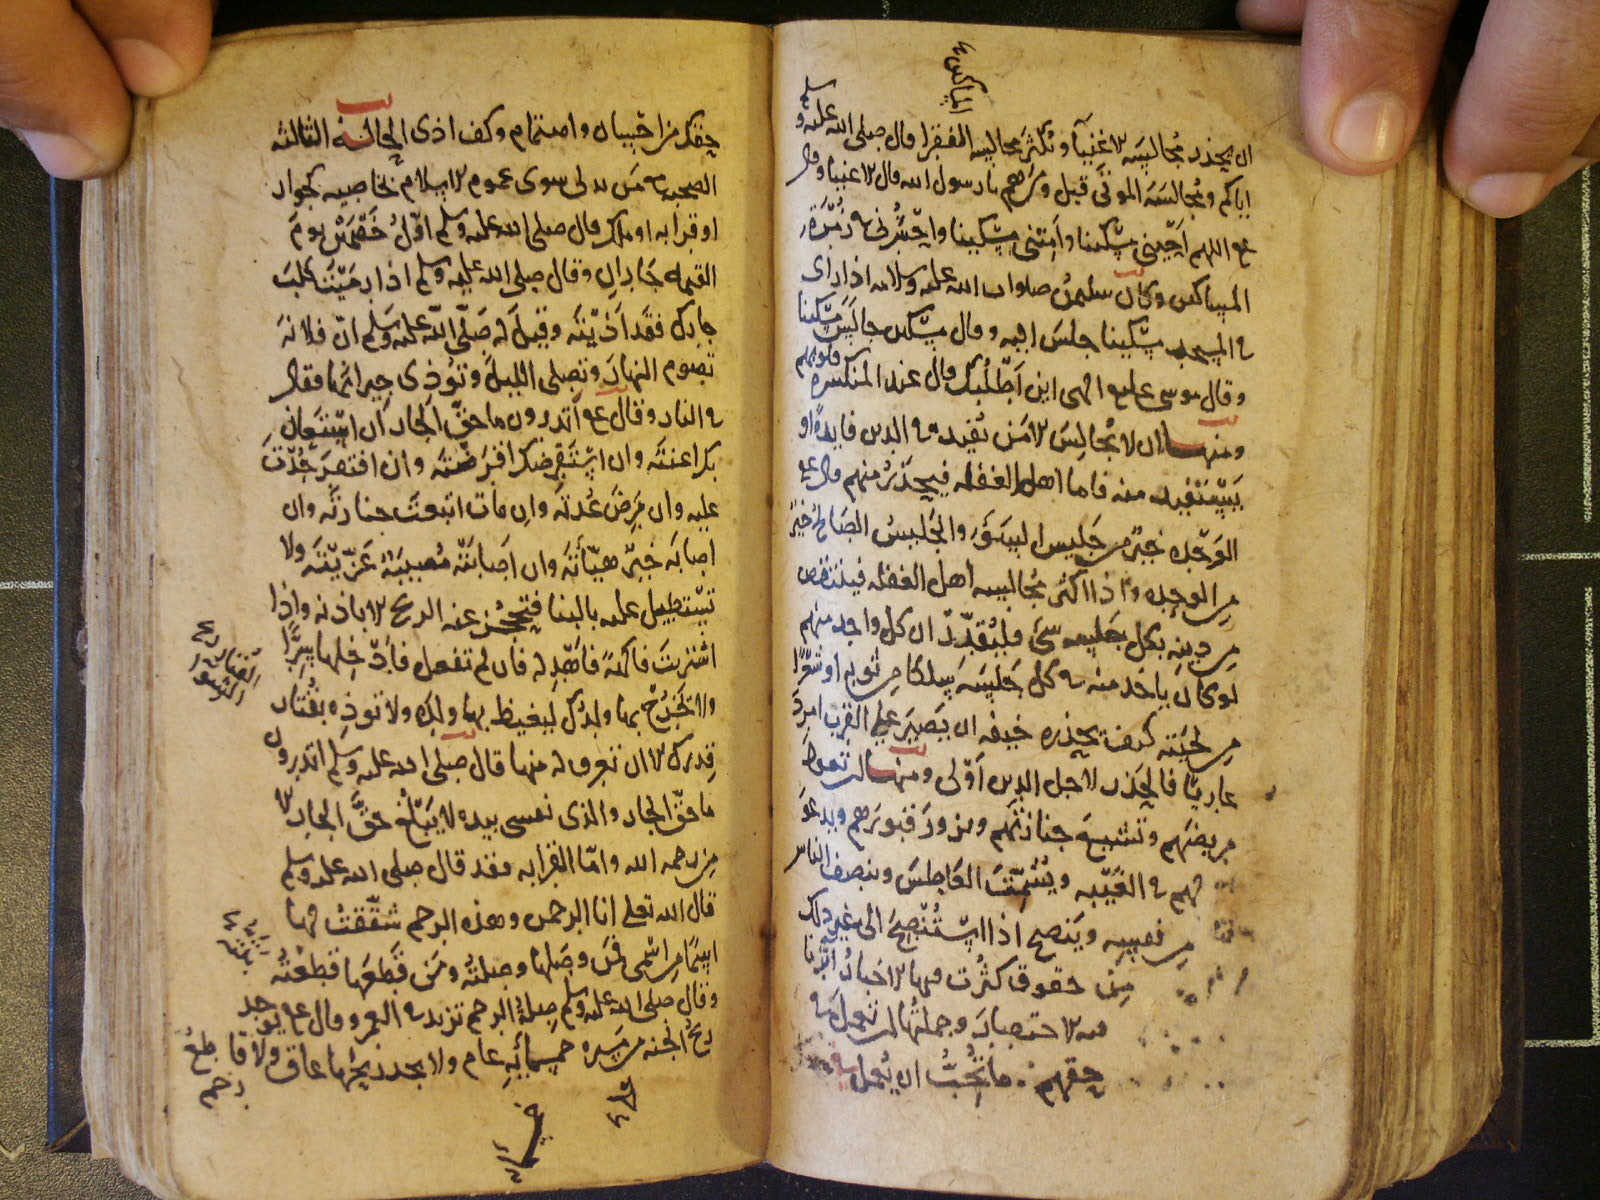 المساكين
ان يحذر مجالسه الاغنيا وتكثر مجالسه الفقرا قال صلى الله عليه وسلم
اياكم ومجالسة الموتى قيل ومن هم يا رسول الله قال الاغنيا وقال
ع اللهم احيني مسكينا وامتني مسكينا واحشرني في زمرة
المساكين وكان سليمن صلوات الله عليه وسلامه اذا راى
في المسجد مسكينا جلس اليه وقال مسكين جالس مسكينا
وقال موسى عليلم الهي اين اطلبك قال عند المنكسره قلوبهم
ومنها ان لا تجالس الا من تفيده في الدين فايدة او
يستفيد منه فاما اهل الغفله فيحذر منهم قال ع
الوحده خير من جليس السو والجليس الصالح خير
من الوحده واذا اكثر مجالسه اهل الغفله فينتقص
من دينه بكل جلسه شي فليقدر ان كل واحد منهم
لو كان ياخد منه في كل جلسه سلكا من ثوبه او شعرا
من لحيته كيف يحذره خيفه ان يصير على القرب امرد
عاريا فالحذر لاجل الدين اولى ومنها ان تعود
مريضهم وتشيع جنازتهم وتزور قبورهم ويدعو
لهم في الغيبه ويشمت العاطس وينصف الناس
من نفسه وينصح اذا استنصح الى غير ذلك
من حقوق كثرت فيها الاخبار اثرنا
فيه الاختصار وجملتها ان تعمل في
حقهم ما تحب ان يعمل
حقك من احسان واهتمام وكف اذى الحالة الثالثه
الصحبه من يدلى سوى عموم الاسلام بخاصيه كجوار
او قرابه او ملك قال صلى الله عليه وسلم اول خصمين يوم
القيمه جاران وقال صلى الله عليه وسلم اذا رميت كلب
جارك فقد اذيته وقيل له صلى الله عليه وسلم ان فلانه
تصوم النهار وتصلى الليل وتوذى جيرانها فقال
في النار وقال ع اتدرون ما حق الجار ان استعان
بك اعنته وان استقرضك اقرضته وان افتقر جدت
عليه وان مرض عدته وان مات اتبعت جنازته وان
اصابه خير هيأته وان اصابته مصيبة عزيته ولا
تستطيل عليه بالبنا فتحجز عنه الريح الا باذنه واذا
اشتريت فاكهة فاهد له فان لم تفعل فادخلها سرا
ولا تخرج بها ولدك ليغيظ بها ولده ولا توذه بقتار
القتار ريح
قدرك الا ان تغرف له منها قال صلى الله عليه وسلم اتدرون
ما حق الجار والذى نفسى بيده لا يبلغ حق الجار الا
من رحمه الله واما القرابه فقد قال صلى الله عليه وسلم
قال الله تعلى انا الرحمن وهذه الرحم شققت لها
اسما من اسمى فمن وصلها وصلته ومن قطعها قطعته
بتته
وقال صلى الله عليه وسلم صلة الرحم تزيد في العمر وقال ع يوجد
ريح الجنه من مسيرة خمسمائه عام ولا يجد ريحها عاق ولا قاطع
رحم